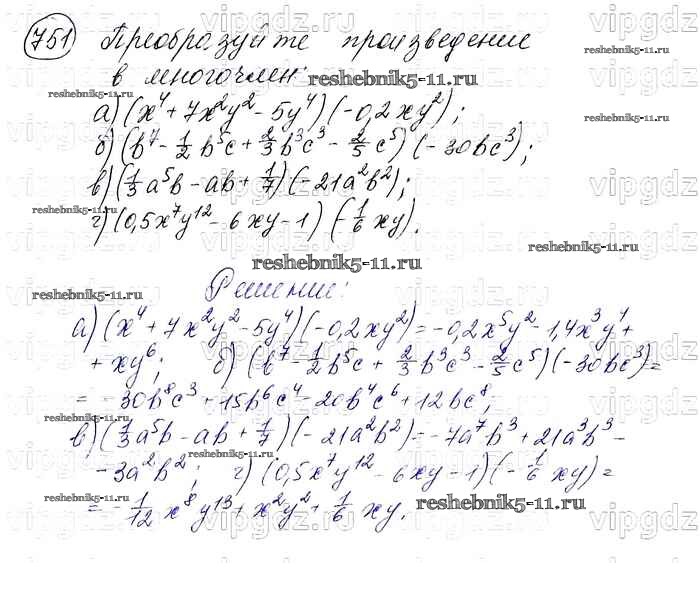 751 Преобразуйте произведение
в многочлен:
а) (x⁴ + 7x²y² - 5y⁴)(-0,2xy²);
б) (b⁷ - 1/2 b⁵c + 2/3 b³c³ - 2/5 c⁵)(-30bc³);
в) (1/3 a⁵b - ab + 1/7)(-21a²b²);
г) (0,5x⁷y¹² - 6xy - 1)(-1/6 xy).
Решение:
а) (x⁴ + 7x²y² - 5y⁴)(-0,2xy²) = -0,2x⁵y² - 1,4x³y⁴ +
+ xy⁶; б) (b⁷ - 1/2 b⁵c + 2/3 b³c³ - 2/5 c⁵)(-30bc³) =
= -30b⁸c³ + 15b⁶c⁴ - 20b⁴c⁶ + 12bc⁸;
в) (1/3 a⁵b - ab + 1/7)(-21a²b²) = -7a⁷b³ + 21a³b³ -
- 3a²b²; г) (0,5x⁷y¹² - 6xy - 1)(-1/6 xy) =
= -1/12 x⁸y¹³ + x²y² + 1/6 xy.
vipgdz
reshebnik5-11.ru